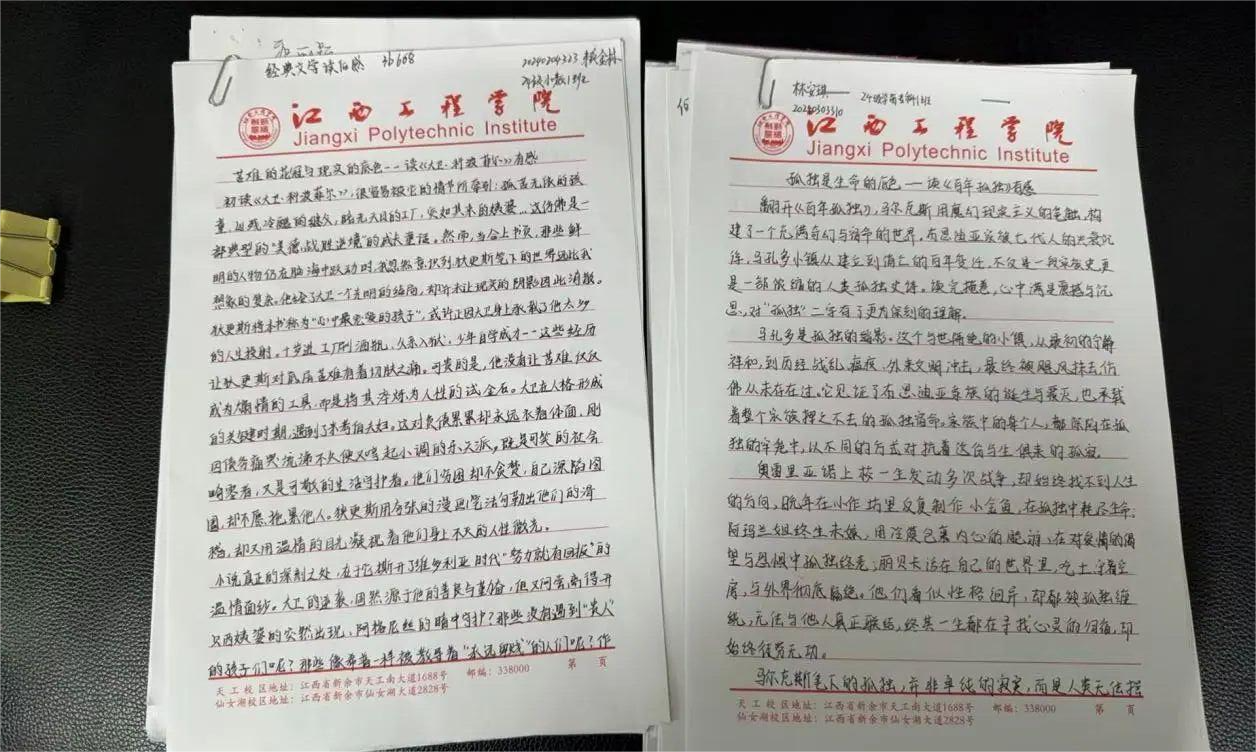 经典文学读后感 3b608
20240204323
24级小教1班
江西工程学院
Jiangxi Polytechnic Institute
苦难的花冠与现实的底色——读《大卫·科波菲尔》有感
初读《大卫·科波菲尔》，很容易被它的情节所牵引：孤苦无依的孩
童，凶残冷酷的继父，暗无天日的工厂，突如其来的姨婆…这仿佛是一
部典型的“美德战胜逆境”的成长童话。然而，当合上书页，那些鲜
明的人物仍在脑海中跃动时，我忽然意识到，狄更斯笔下的世界远比我
想象的复杂。他给了大卫一个光明的结局，却并未让现实的阴影因此消散。
狄更斯将本书称为“心中最宠爱的孩子”，或许正因大卫身上承载了他太多
的人生投射。十岁进工厂刷酒瓶，父亲入狱，少年自学成才——这些经历
让狄更斯对底层苦难有着切肤之痛。可贵的是，他没有让苦难仅仅
成为煽情的工具，而是将其淬炼为人性的试金石。大卫在人格形成
的关键时期，遇到了米考伯夫妇。这对负债累累却永远衣着体面，刚
因债务痛哭流涕不久便又哼起小调的乐天派，既是可笑的社会
畸零者，又是可敬的生活守护者。他们穷困却不贪婪，自己深陷困
囿，却不愿拖累他人。狄更斯用夸张的漫画笔法勾勒出他们的滑
稽，却又用温情的目光凝视着他们身上不灭的人性微光。
小说真正的深刻之处，在于它撕开了维多利亚时代“努力就有回报”的
温情面纱。大卫的逆袭，固然源于他的善良与勤奋，但又何尝离得开
贝西姨婆的突然出现，阿格尼丝的暗中守护？那些没有遇到“贵人”
的孩子们呢？那些像希普一样被教导着“永远卑贱”的人们呢？作
天工校区地址：江西省新余市天工南大道1688号 邮编：338000 第 页
仙女湖校区地址：江西省新余市仙女湖大道2828号
林安琪
24级学前专科1班
20240303310
江西工程学院
Jiangxi Polytechnic Institute
孤独是生命的底色——读《百年孤独》有感
翻开《百年孤独》，马尔克斯用魔幻现实主义的笔触，构
建了一个充满奇幻与宿命的世界。布恩迪亚家族七代人的兴衰沉
浮，马孔多小镇从建立到消亡的百年变迁，不仅是一段家族史，更
是一部浓缩的人类孤独史诗。读完掩卷，心中满是震撼与沉
思，对“孤独”二字有了更为深刻的理解。
马孔多是孤独的缩影。这个与世隔绝的小镇，从最初的宁静
祥和，到历经战乱、瘟疫、外来文明冲击，最终被飓风抹去，仿
佛从未存在过，它见证了布恩迪亚家族的诞生与覆灭，也承载
着整个家族挥之不去的孤独宿命。家族中的每个人，都深陷在孤
独的牢笼中，以不同的方式对抗着这份与生俱来的孤寂。
奥雷里亚诺上校一生发动多次战争，却始终找不到人生
的方向，晚年在小作坊里反复制作小金鱼，在孤独中耗尽生命；
阿玛兰妲终生未嫁，用冷漠包裹内心的脆弱，在对爱情的渴
望与恐惧中孤独终老；丽贝卡活在自己的世界里，吃土、守着空
房，与外界彻底隔绝。他们看似性格迥异，却都被孤独缠
绕，无法与他人真正联结，终其一生都在寻找心灵的归宿，却
始终徒劳无功。
马尔克斯笔下的孤独，并非单纯的寂寞，而是人类无法摆
天工校区地址：江西省新余市天工南大道1688号 邮编：338000 第 页
仙女湖校区地址：江西省新余市仙女湖大道2828号